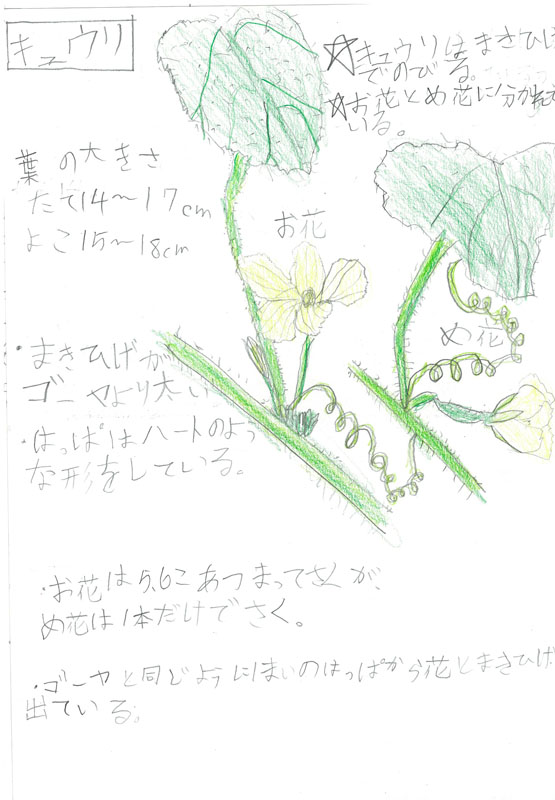 キュウリ
☆キュウリはまきひげ
でのびる。
☆お花とめ花に分かれて
いる。
葉の大きさ
たて14〜17cm
よこ15〜18cm
お花
め花
・まきひげが
ゴーヤより太い
・はっぱはハートのよう
な形をしている。
・お花は5,6こあつまってさくが、
め花は1本だけでさく。
・ゴーヤと同じように1まいのはっぱから花とまきひげ
出ている。